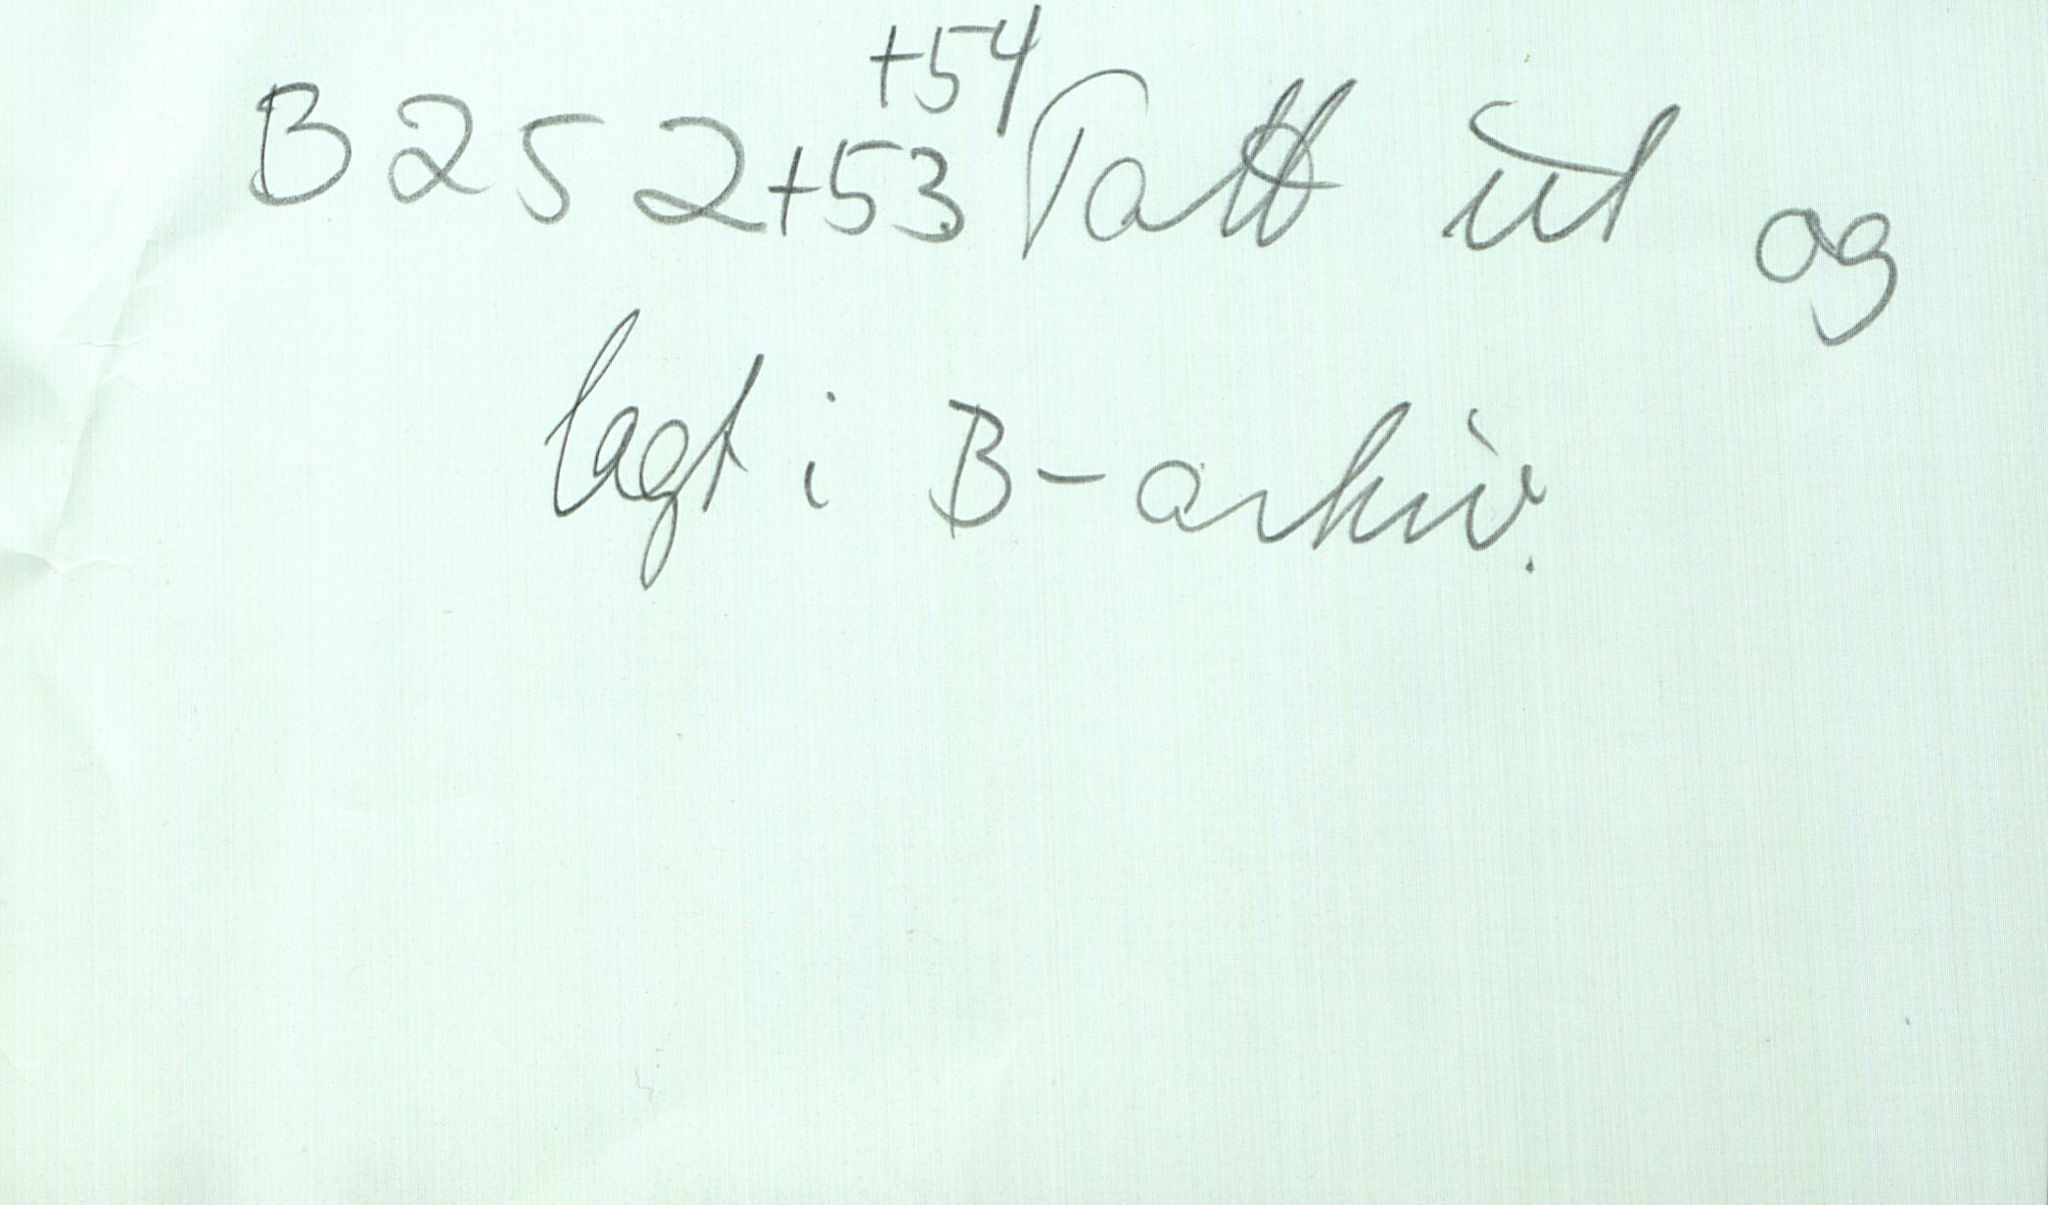 +54
B 252+53 Tatt ut og
lagt i B-arkiv.